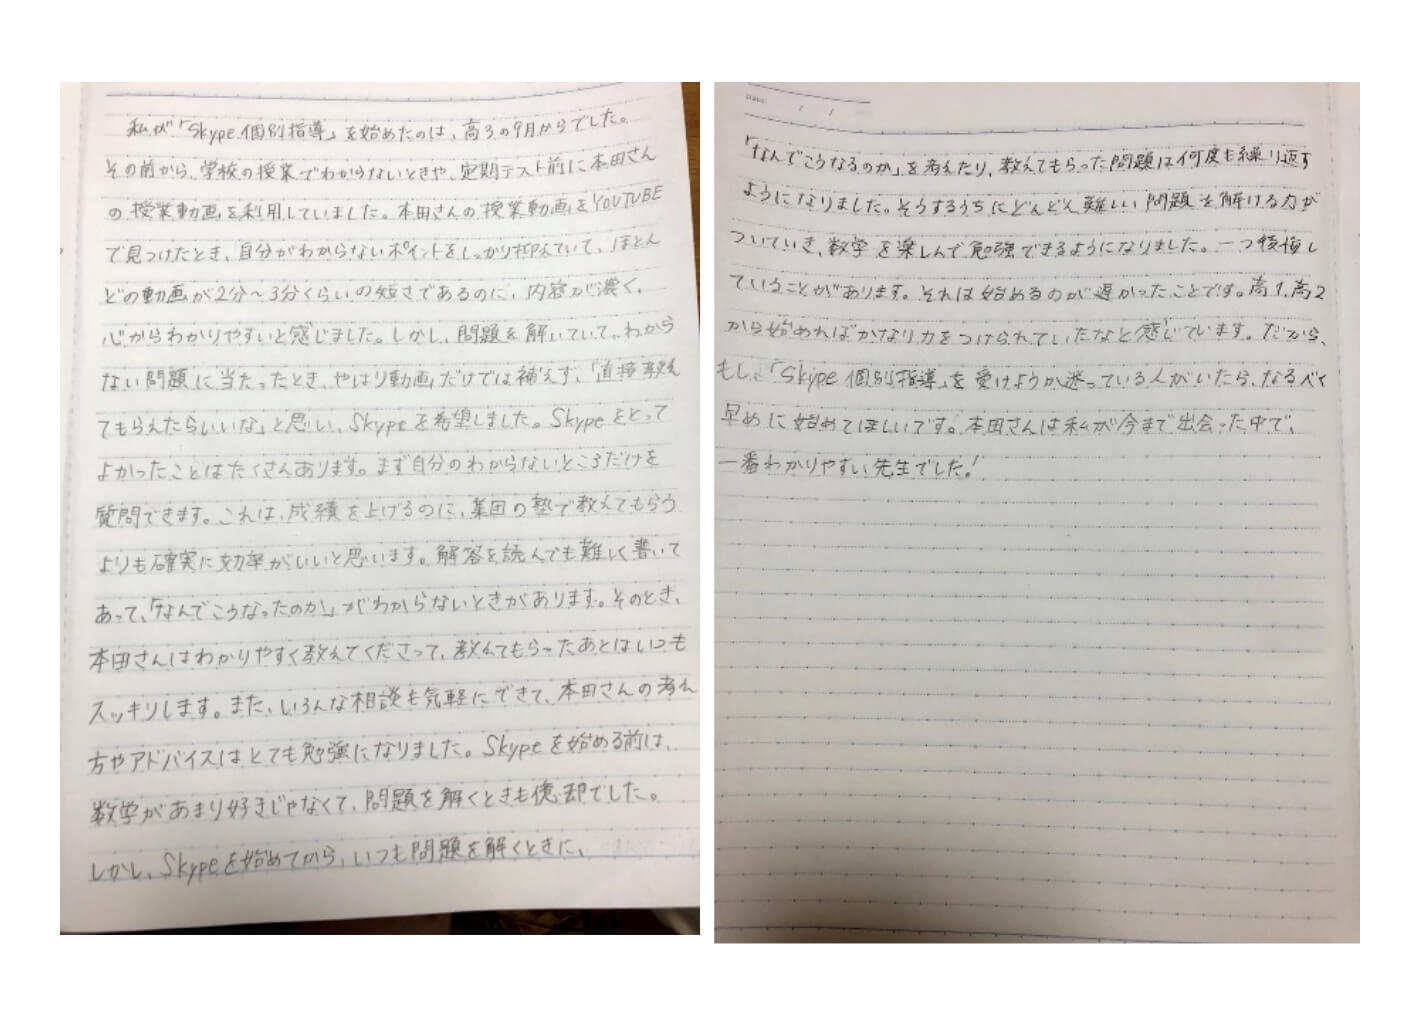 私が「Skype個別指導」を始めたのは、高3の9月からでした。
その前から、学校の授業でわからないときや、定期テスト前に本田さん
の授業動画を利用していました。本田さんの授業動画をYOUTUBE
で見つけたとき、自分がわからないポイントをしっかり抑えていて、ほとん
どの動画が2分～3分くらいの短さであるのに、内容が濃く、
心からわかりやすいと感じました。しかし、問題を解いていて、わから
ない問題に当たったとき、やはり動画だけでは補えず、「直接教え
てもらえたらいいな」と思い、Skypeを希望しました。Skypeをとって
よかったことはたくさんあります。まず自分のわからないところだけを
質問できます。これは、成績を上げるのに、集団の塾で教えてもらう
よりも確実に効率がいいと思います。解答を読んでも難しく書いて
あって、「なんでこうなったのか」がわからないときがあります。そのとき、
本田さんはわかりやすく教えてくださって、教えてもらったあとはいつも
スッキリします。また、いろんな相談も気軽にできて、本田さんの考え
方やアドバイスはとても勉強になりました。Skypeを始める前は、
数学があまり好きじゃなくて、問題を解くときも億却でした。
しかし、Skypeを始めてから、いつも問題を解くときに、
Date: / /
「なんでこうなるのか」を考えたり、教えてもらった問題は何度も繰り返す
ようになりました。そうするうちにどんどん難しい問題を解ける力が
ついていき、数学を楽しんで勉強できるようになりました。一つ後悔し
ていることがあります。それは始めるのが遅かったことです。高1、高2
から始めればかなり力をつけられていたなと感じています。だから、
もし、「Skype個別指導」を受けようか迷っている人がいたら、なるべく
早めに始めてほしいです。本田さんは私が今まで出会った中で、
一番わかりやすい先生でした！